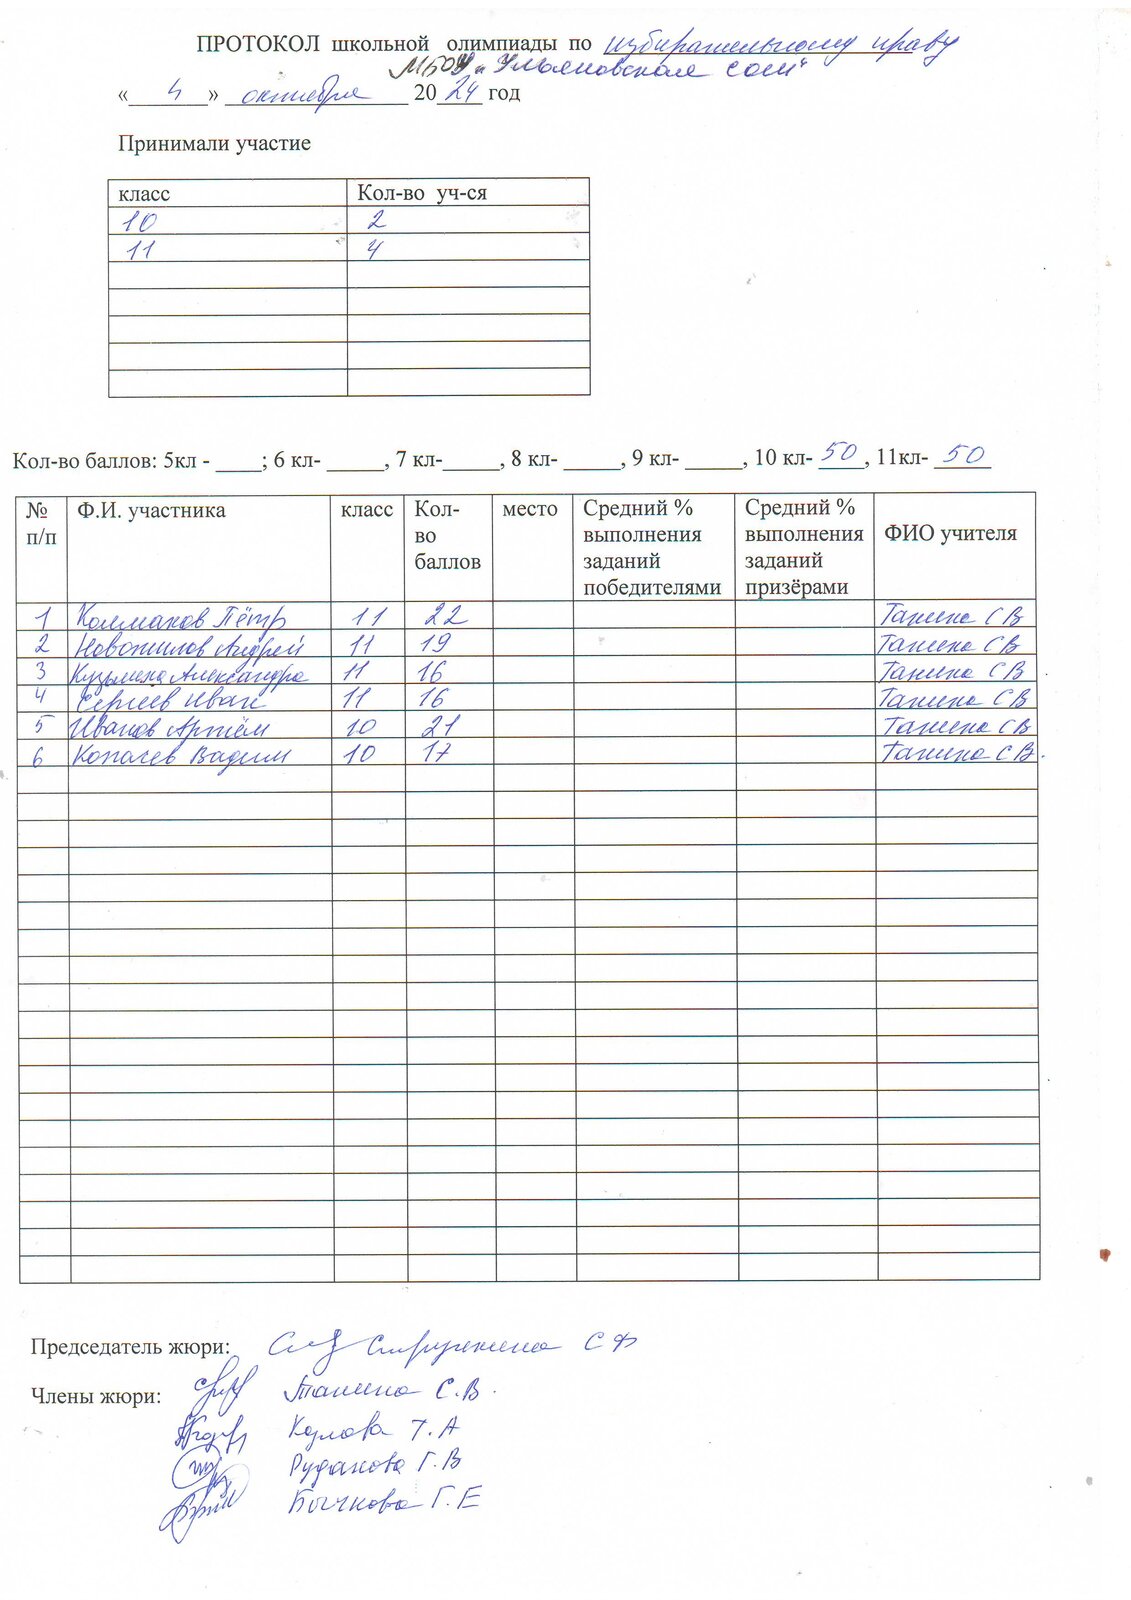 ПРОТОКОЛ школьной олимпиады по избирательному праву
МБОУ "Ульяновская сош"
« 4 » октября 2024 год
Принимали участие
класс Кол-во уч-ся
10 2
11 4
Кол-во баллов: 5кл - ____; 6 кл- _____, 7 кл-_____, 8 кл- _____, 9 кл- _____, 10 кл- 50, 11кл- 50
№ п/п Ф.И. участника класс Кол-во баллов место Средний % выполнения заданий победителями Средний % выполнения заданий призёрами ФИО учителя
1 Колмаков Пётр 11 22 Танина С В
2 Новожилов Андрей 11 19 Танина С В
3 Кузьмина Александра 11 16 Танина С В
4 Сергеев Иван 11 16 Танина С В
5 Иванов Артём 10 21 Танина С В
6 Копачев Вадим 10 17 Танина С В.
Председатель жюри: С Ф
Члены жюри: Танина С.В.
Козлова Т.А
Рудакова Г.В
Бычкова Г.Е